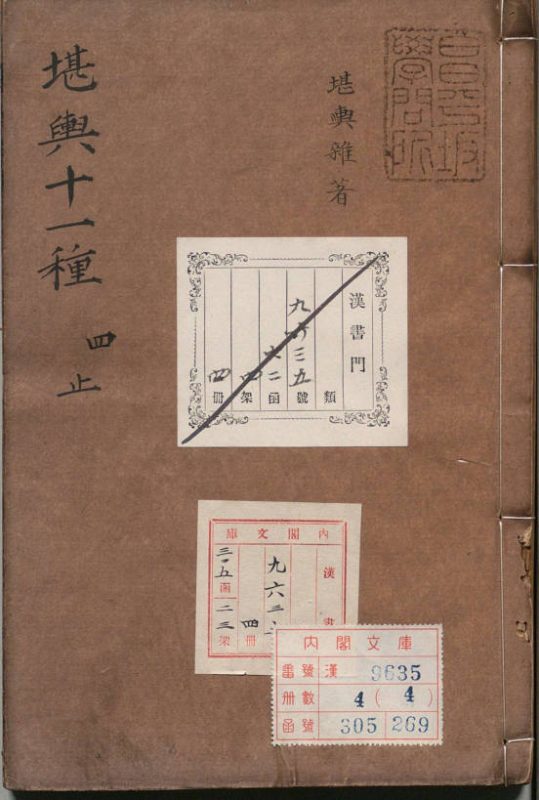 堪輿十一種
四止
堪輿雜著
昌平坂
學問所
漢書門
類
九六三五號
六二函
四架
四冊
內閣文庫
漢書
九六三
四冊
三〇五函
二三架
內閣文庫
番號 漢 9635
冊數 4 ( 4 )
函號 305 269